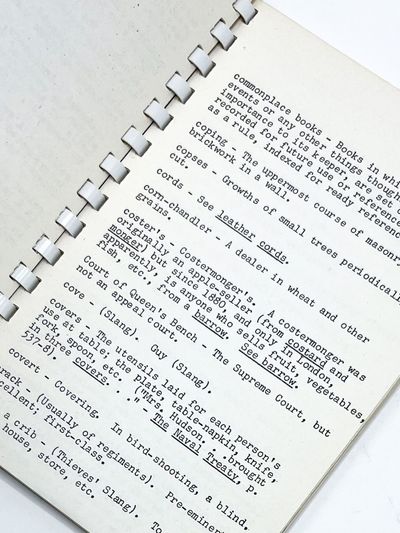 commonplace books - Books in whi
events or any other things though
importance to its keeper, are set
recorded for future use or reference
as a rule, indexed for ready referenc
coping - The uppermost course of masonr
brickwork in a wall.
copses - Growths of small trees periodicall
cut.
cords - See leather cords.
corn-chandler - A dealer in wheat and other
grains.
coster's - Costermonger's. A costermonger was
originally an apple-seller (from costard and
monger) but since 1880, and only in London,
apparently, is anyone who sells fruit, vegetables,
fish, etc., from a barrow. See barrow.
Court of Queen's Bench - The Supreme Court, but
not an appeal court.
cove - (Slang). Guy (Slang).
covers - The utensils laid for each person's
use at table; the plate, table-napkin, knife,
fork, spoon, etc. ("Mrs. Hudson. . .brought
in three covers. . ." - The Naval Treaty, p.
537-8).
covert - Covering. In bird-shooting, a blind.
rack - (Usually of regiments). Pre-eminen
cellent; first-class.
a crib - (Thieves' Slang). To
house, store, etc.